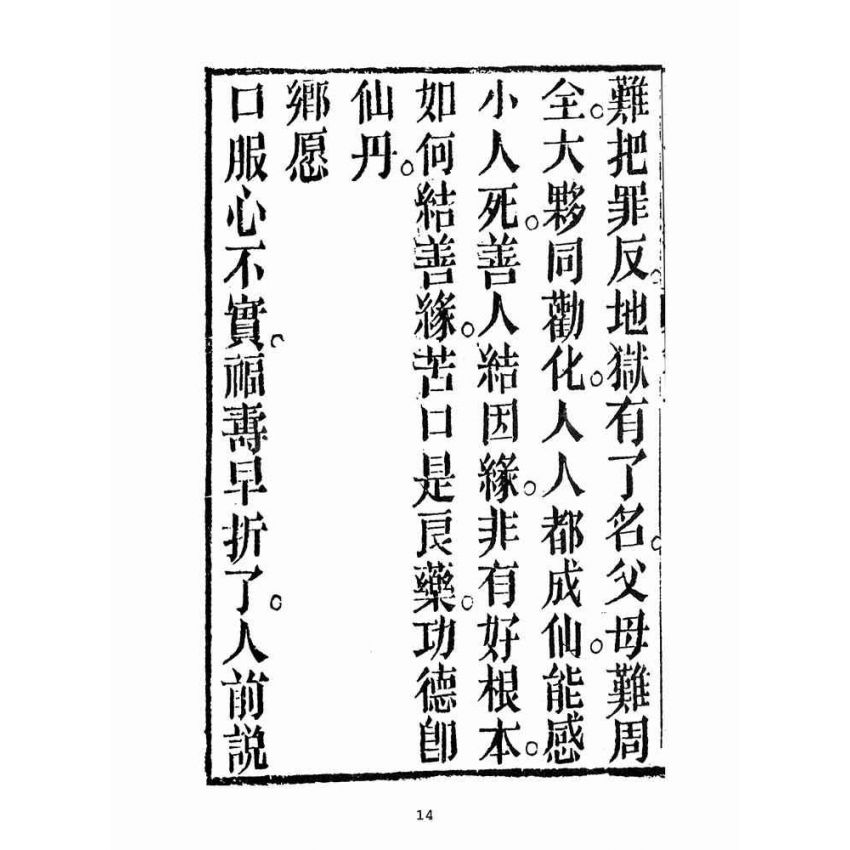 難把罪反。地獄有了名。父母難周
全。大夥同勸化。人人都成仙。能感
小人死。善人結因緣。非有好根本。
如何結善緣。苦口是良藥。功德卽
仙丹。
鄉愿
口服心不實。福壽早折了。人前說
14